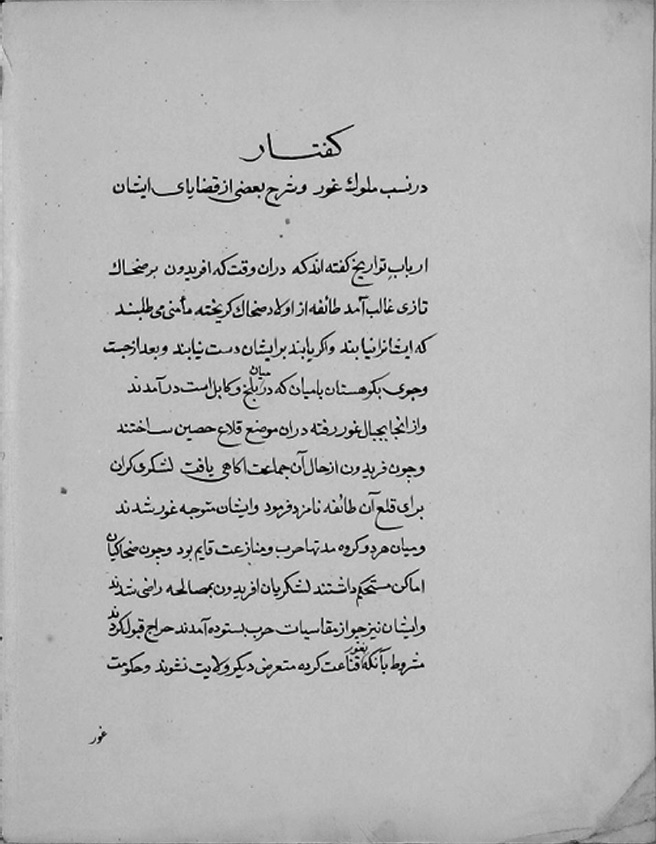 کفتار
در نسب ملوك غور و شرح بعضی از قضایای ایشان
ارباب تواریخ کفته اند که دران وقت که افریدون بر ضحاك
تازی غالب آمد طائفه از اولاد ضحاك کریخته مأمنی می طلبند
که ایشانرا نیابند واکر یابند بر ایشان دست نیابند و بعد از جست
وجوی بکوهستان بامیان که در میان بلخ و کابل است در آمدند
واز انجا بجبال غور رفته دران موضع قلاع حصین ساختند
وچون فریدون از حال آن جماعت اکاهی یافت لشکری کران
برای قلع آن طائفه نامزد فرمود وایشان متوجه غور شدند
ومیان هر دو کروه مدتها حرب و منازعت قایم بود وچون ضحاکیان
اماکن مستحکم داشتند لشکریان افریدون بمصالحه راضی شدند
وایشان نیز چو از مقاسیات حرب بستوده آمدند خراج قبول کردند
مشروط بآنکه بغور قناعت کرده متعرض دیکر ولایت نشوند وحکومت
غور